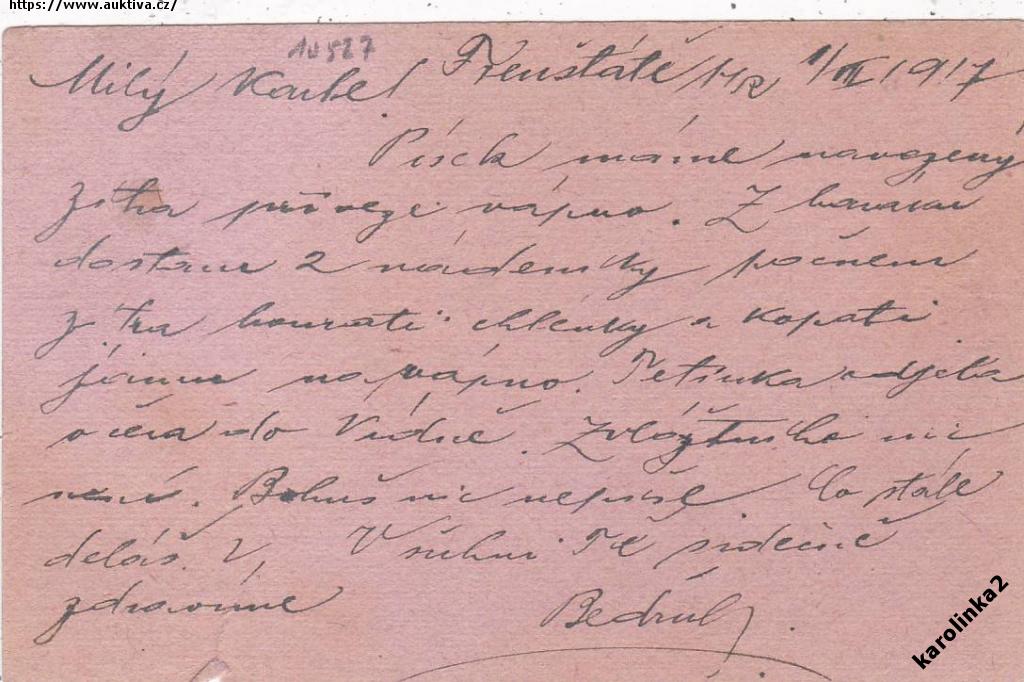 https://www.auktiva.cz/
Milý Karle! Frenštátě 1/III 1917
Písek máme navozený
zítra přiveze vápno. Z baráku
dostanu 2 nádeníky počnem
zítra bourati chlévky a kopati
jámu na vápno. Tetinka odjela
včera do Vídně. Zvláštního nic
není. Bohuš nic nepíše Co stále
děláš? Všichni Tě srdečně
zdravíme Bedřich.
karolinka2